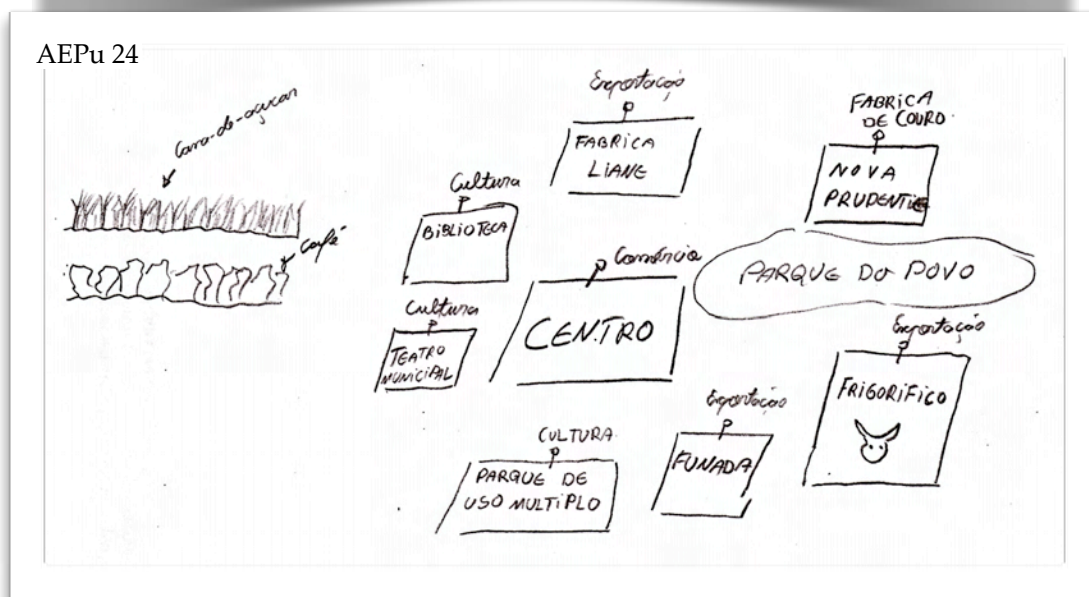 AEPu 24
Cana-de-açucar
café
Exportação
FABRICA
LIANE
FABRICA
DE COURO
NOVA
PRUDENTE
Cultura
BIBLIOTECA
Comércio
CENTRO
PARQUE DO POVO
Cultura
TEATRO
MUNICIPAL
Exportação
FRIGORIFICO
Exportação
FUNADA
CULTURA
PARQUE DE
USO MULTIPLO